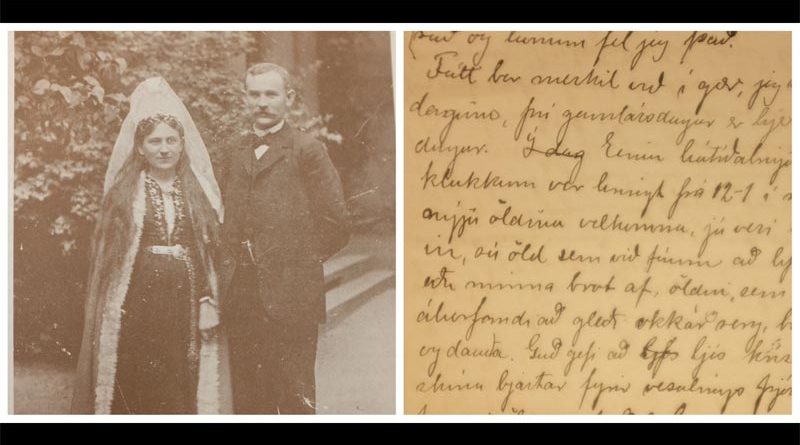 og honum fel jeg það.
Fátt bar merkil við í gær, jeg
daginn, því gamlársdagur er hje
dagur. Í dag
klukkum var hringt frá 12-1 í
nýju öldina velkomna, já veri
in, sú öld sem við fáum að
eða minna brot af, öldin, sem
áhorfandi að gleði okkar sorg, b
og dauða. Guð gefi að ljós
skíni bjartar fyrir vesalings